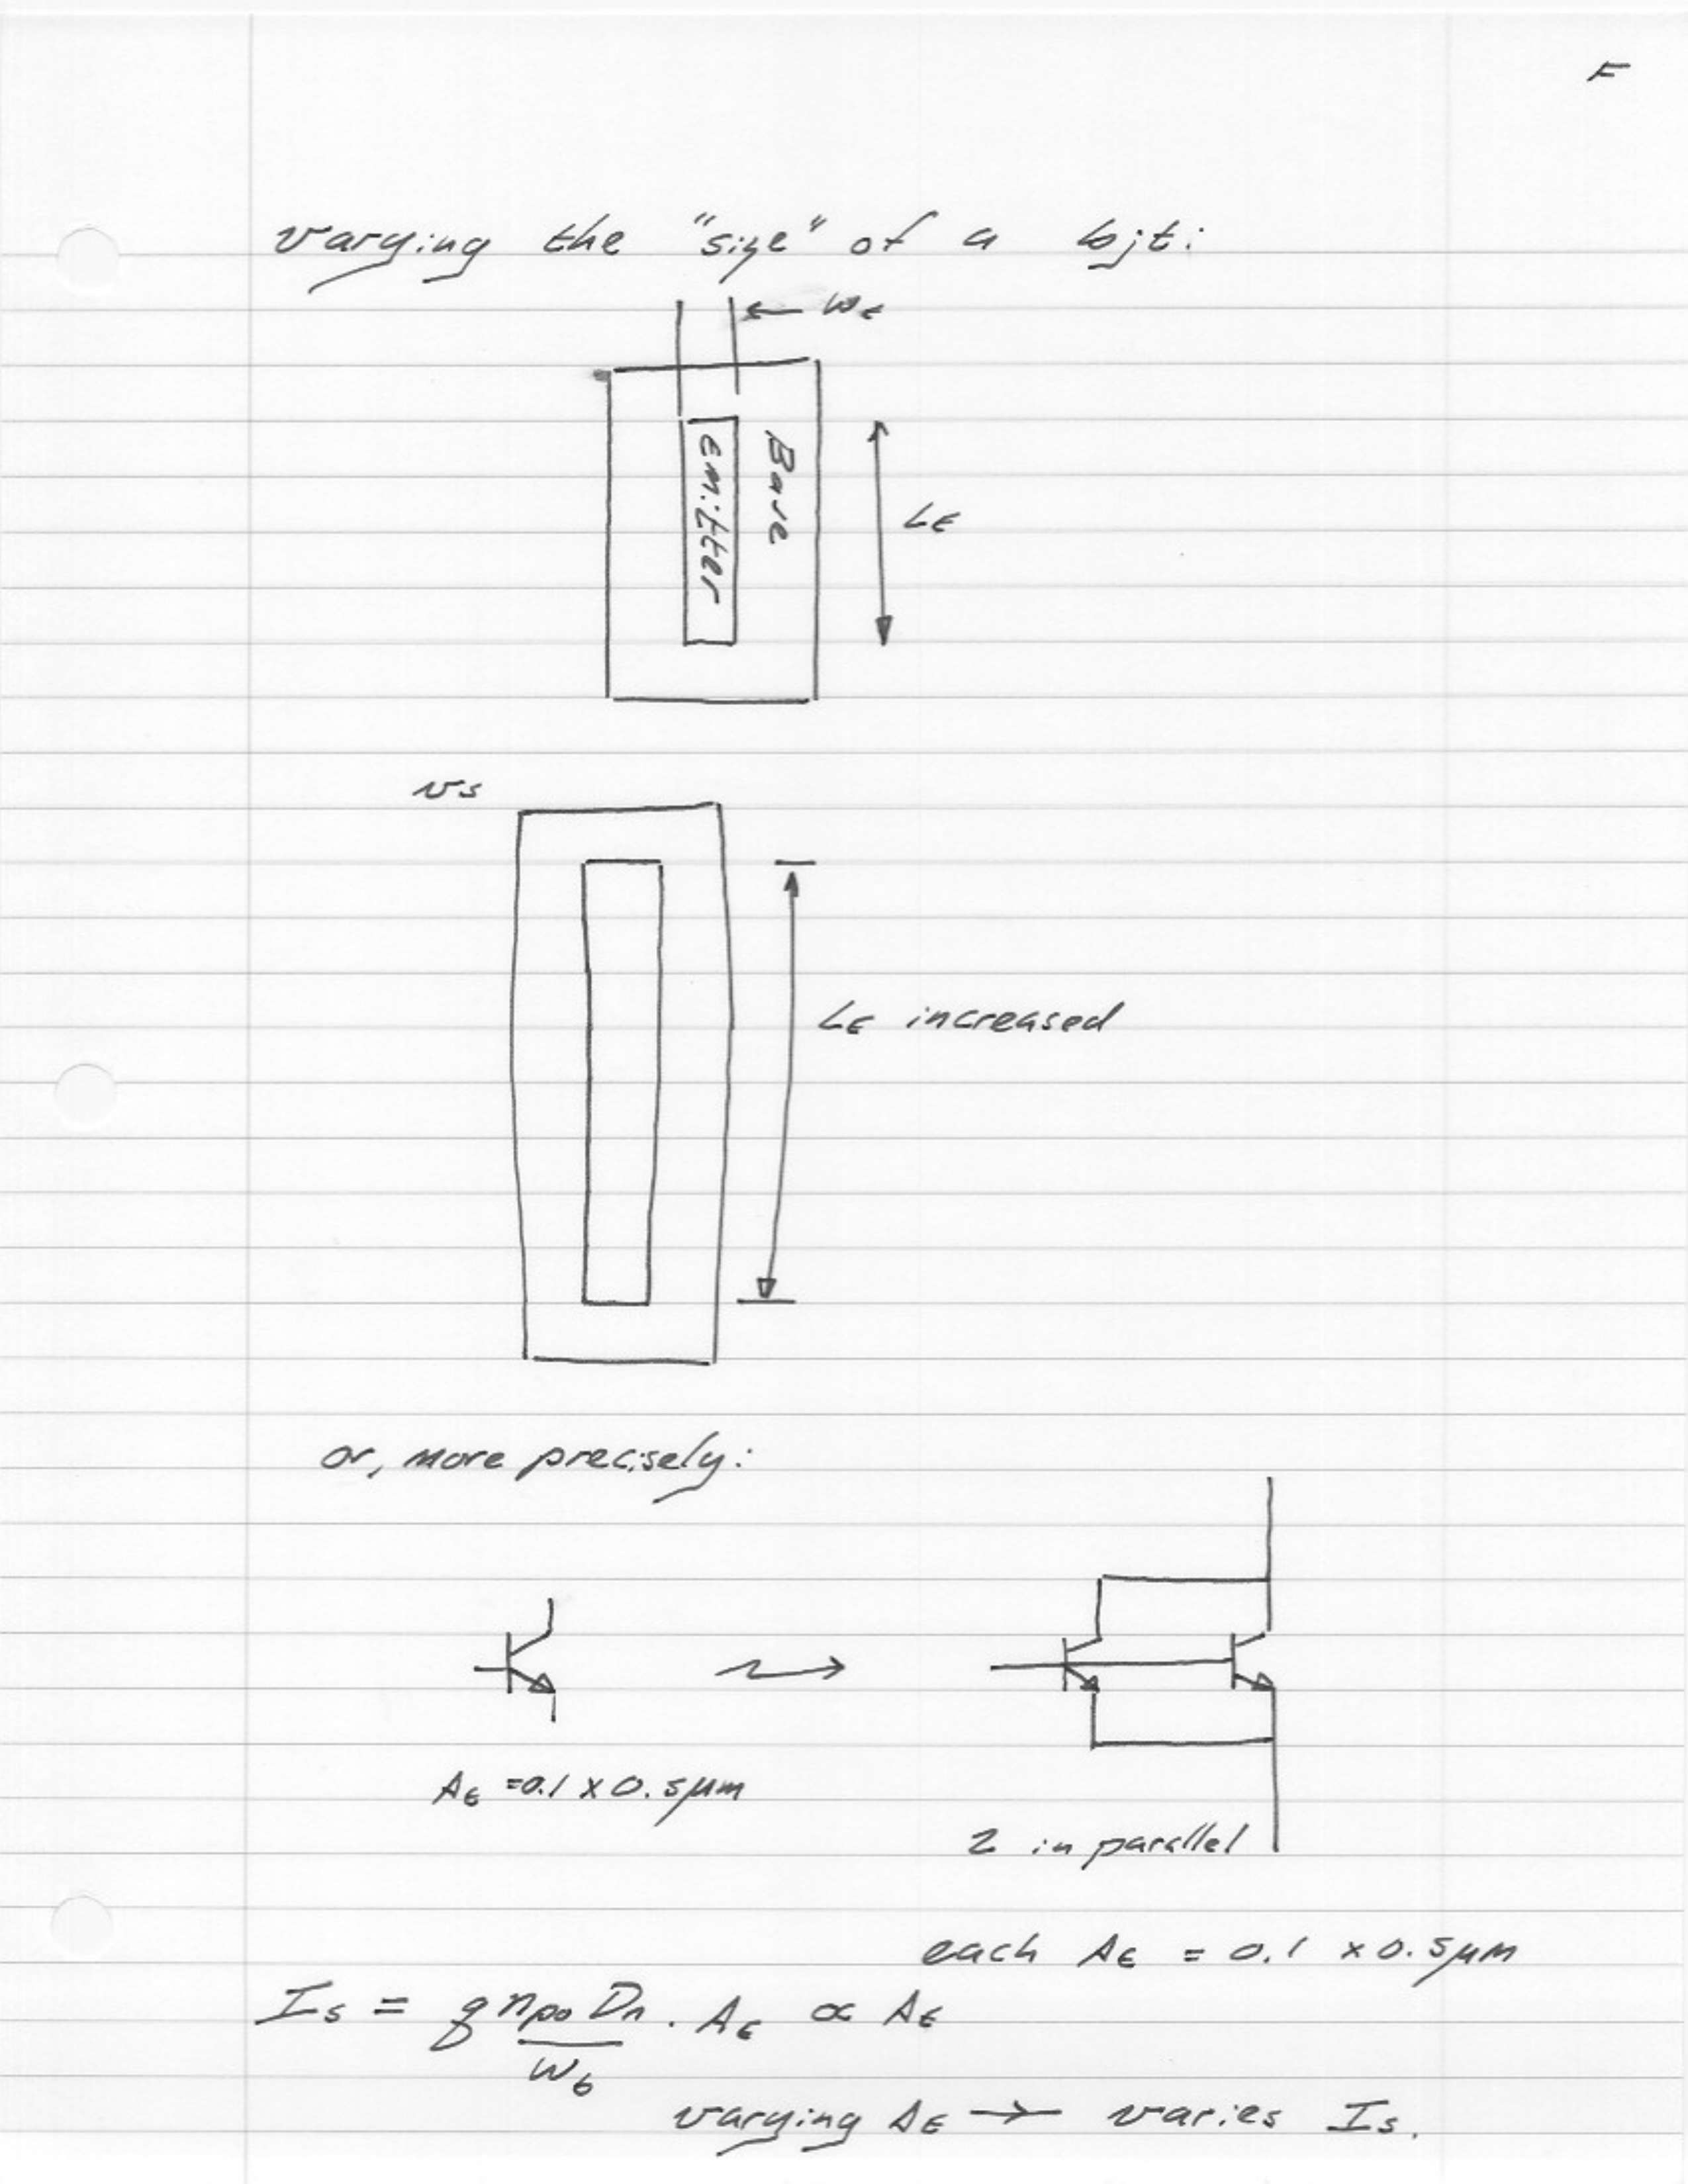 F
varying the "size" of a bjt:
WE
Base
emitter
LE
vs
LE increased
or, more precisely:
AE = 0.1 x 0.5μm
2 in parallel
each AE = 0.1 x 0.5μm
Is = q npo Dn / Wb . AE ∝ AE
varying AE → varies Is.